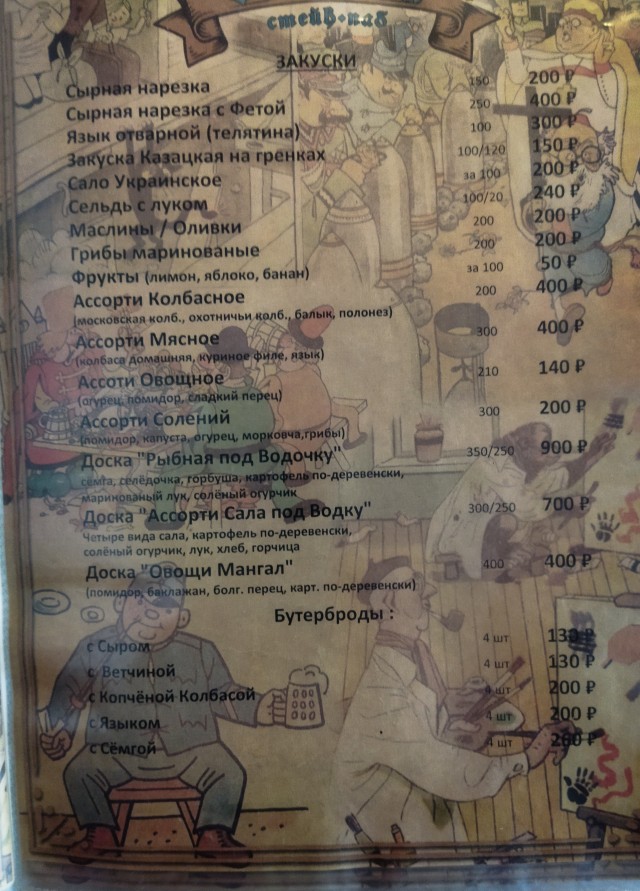 стейк•паб
ЗАКУСКИ
Сырная нарезка 150 200 ₽
Сырная нарезка с Фетой 250 400 ₽
Язык отварной (телятина) 100 300 ₽
Закуска Казацкая на гренках 100/120 150 ₽
Сало Украинское за 100 200 ₽
Сельдь с луком 100/20 240 ₽
Маслины / Оливки 200 200 ₽
Грибы маринованые 200 200 ₽
Фрукты (лимон, яблоко, банан) за 100 50 ₽
Ассорти Колбасное 200 400 ₽
(московская колб., охотничьи колб., балык, полонез)
Ассорти Мясное 300 400 ₽
(колбаса домашняя, куриное филе, язык)
Ассоти Овощное 210 140 ₽
(огурец, помидор, сладкий перец)
Ассорти Солений 300 200 ₽
(помидор, капуста, огурец, морковча,грибы)
Доска "Рыбная под Водочку" 350/250 900 ₽
сёмга, селёдочка, горбуша, картофель по-деревенски,
маринованый лук, солёный огурчик
Доска "Ассорти Сала под Водку" 300/250 700 ₽
Четыре вида сала, картофель по-деревенски,
солёный огурчик, лук, хлеб, горчица
Доска "Овощи Мангал" 400 400 ₽
(помидор, баклажан, болг. перец, карт. по-деревенски)
Бутерброды :
с Сыром 4 шт 130 ₽
с Ветчиной 4 шт 130 ₽
с Копчёной Колбасой 4 шт 200 ₽
с Языком 4 шт 200 ₽
с Сёмгой 4 шт